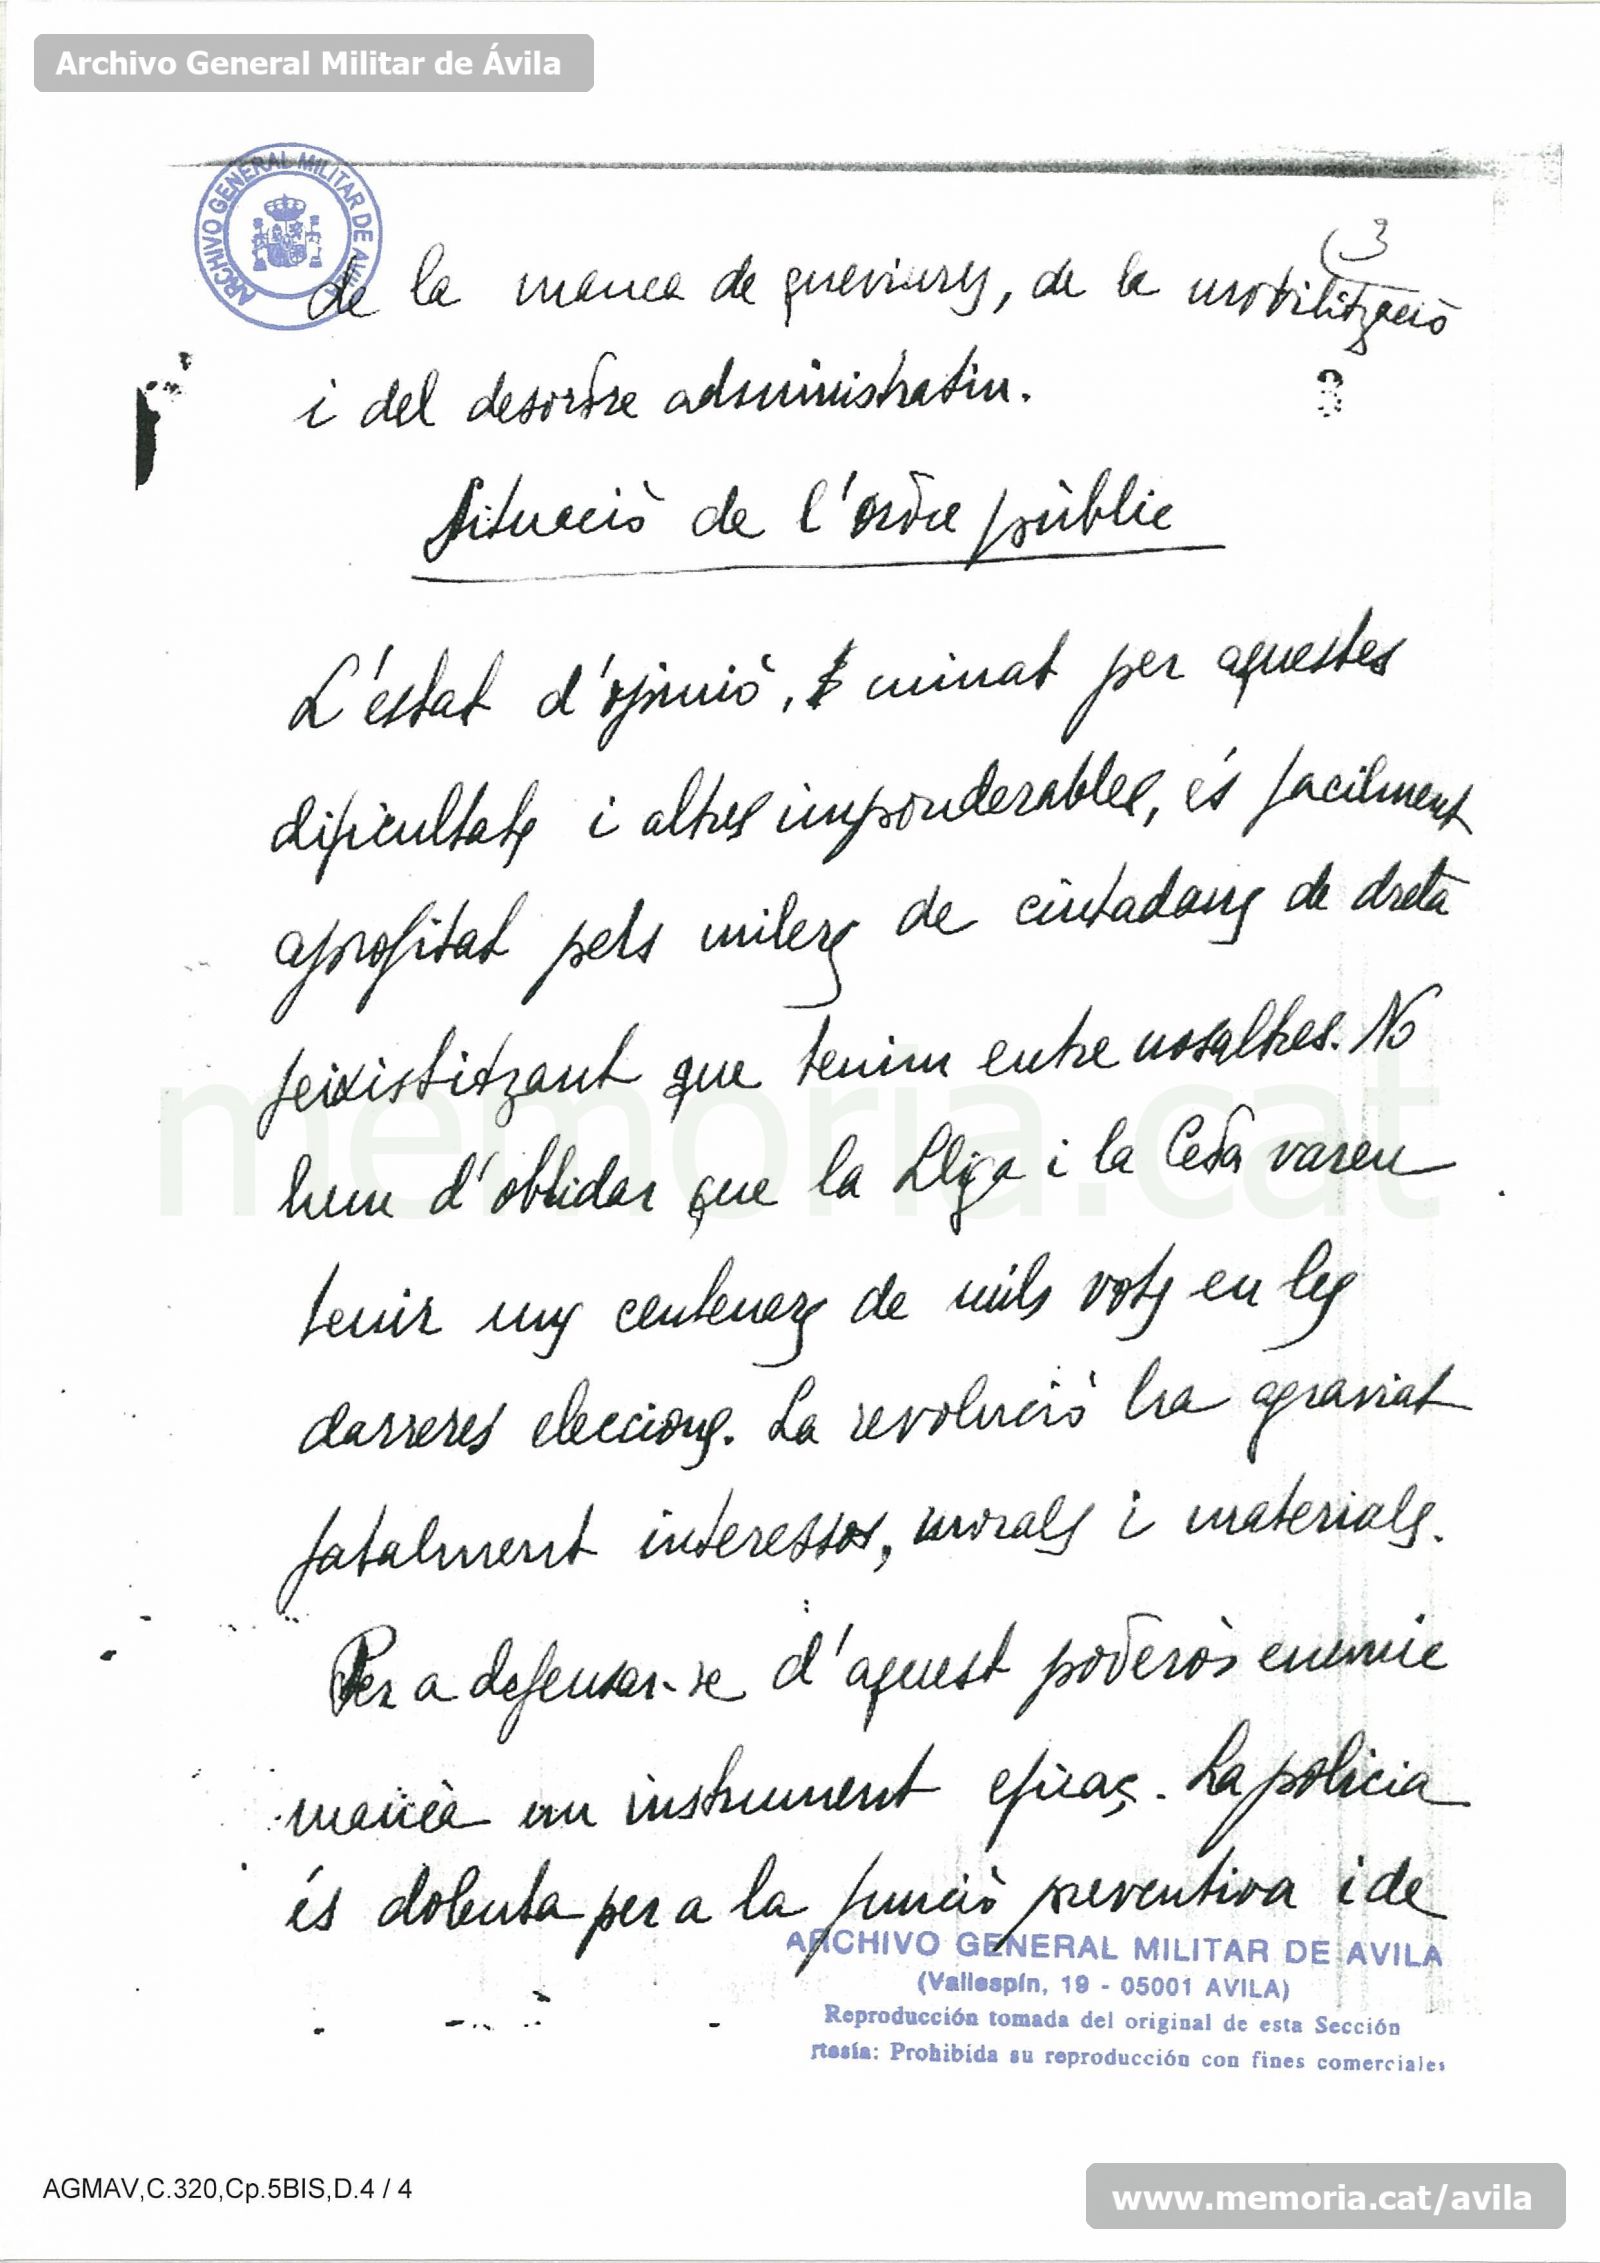 Archivo General Militar de Ávila
ARCHIVO GENERAL MILITAR DE AVILA
(3
de la manca de queviures, de la mobilització
i del desordre administratiu.
Situació de l'ordre públic
L'estat d'opinió, minat per aquestes
dificultats i altres imponderables, és facilment
aprofitat pels milers de ciutadans de dreta
feixistitzant que tenim entre nosaltres. No
hem d'oblidar que la Lliga i la Ceda varen
tenir uns centenars de mils vots en les
darreres eleccions. La revolució ha agraviat
fatalment interessos, morals i materials.
Per a defensar-se d'aquest poderòs enemic
manca un instrument eficaç. La policia
és dolenta per a la funció preventiva i de
memoria.cat
ARCHIVO GENERAL MILITAR DE AVILA
(Vallespín, 19 - 05001 AVILA)
Reproducción tomada del original de esta Sección
rtesía: Prohibida su reproducción con fines comerciales
AGMAV,C.320,Cp.5BIS,D.4 / 4
www.memoria.cat/avila